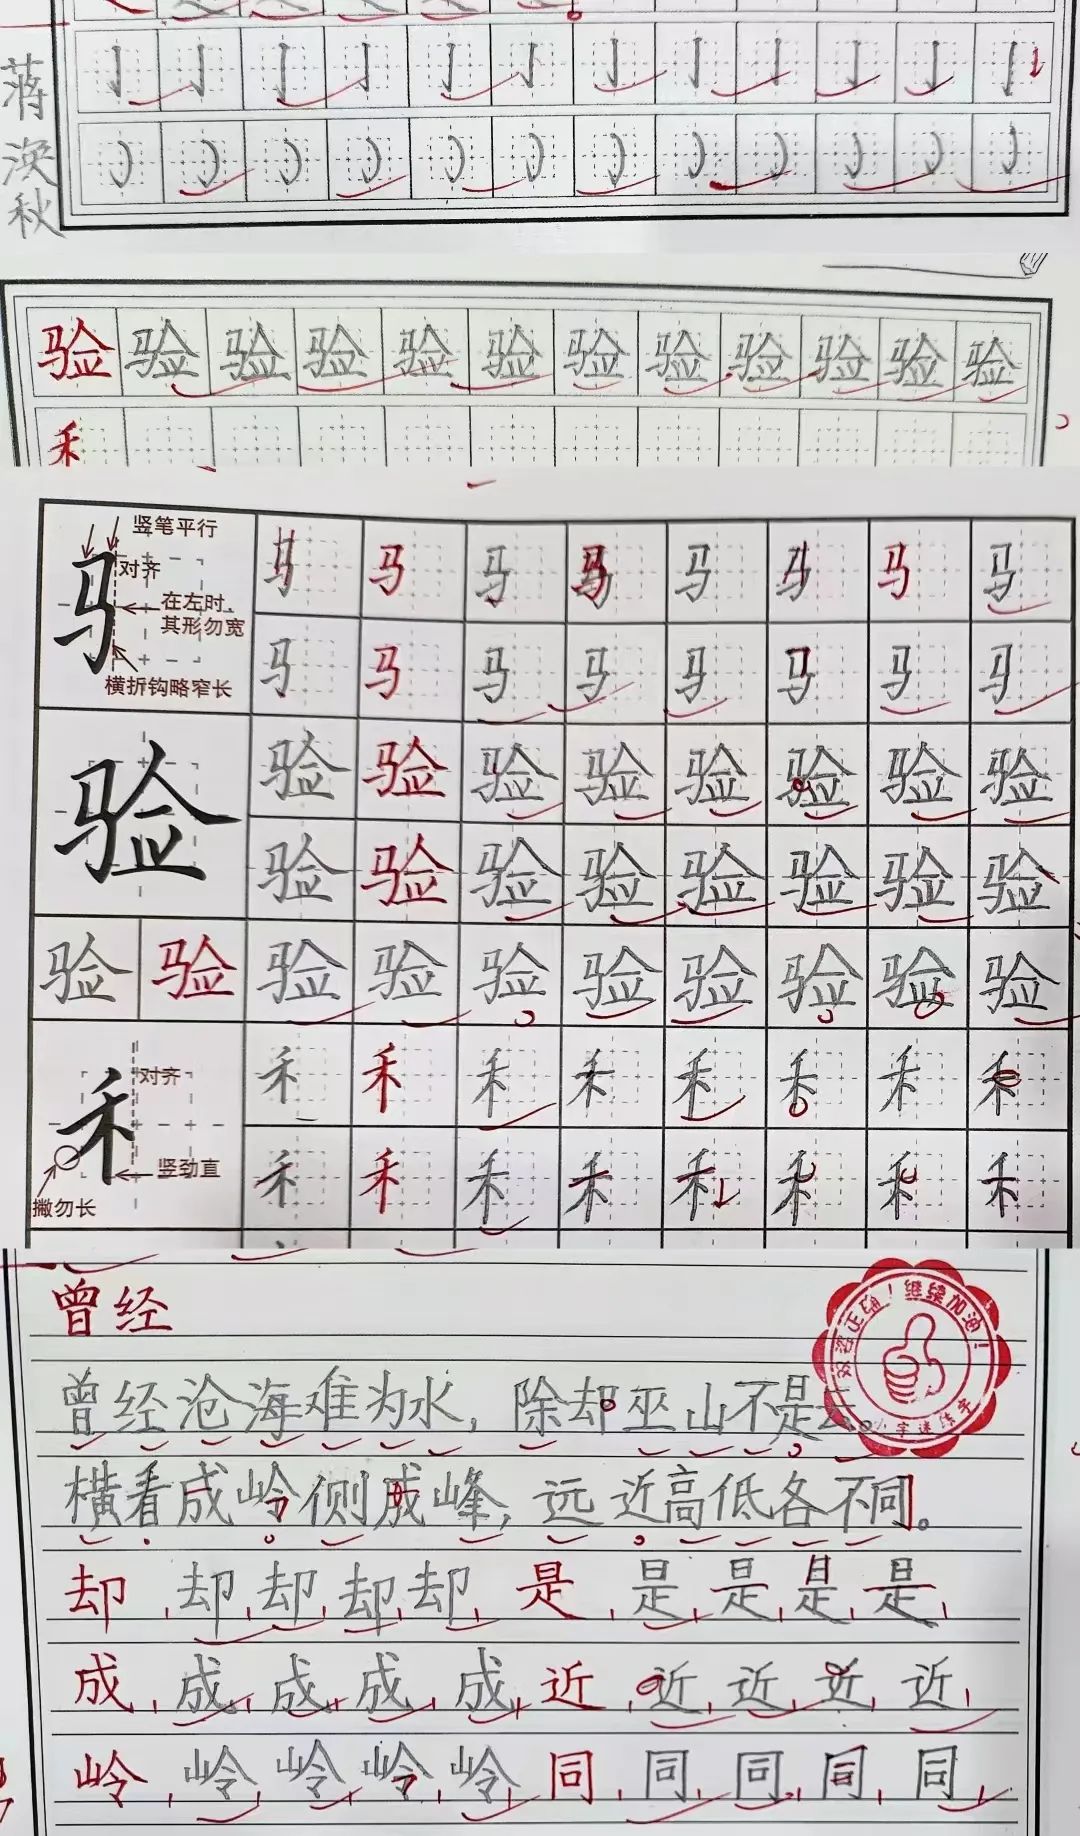 蒋
涣
秋
验验验验验验验验验验验验
禾
竖笔平行
对齐
在左时,
其形勿宽
横折钩略窄长
马马马马马马马马马
马马马马马马马马
验验验验验验验验验
验验验验验验验验
验验验验验验验验验验
对齐
竖劲直
撇勿长
禾禾禾禾禾禾禾禾禾
禾禾禾禾禾禾禾禾
曾经
继续加油!
小字迷练字
曾经沧海难为水,除却巫山不是云。
横看成岭侧成峰,远近高低各不同。
却却却却却是是是是是
成成成成成近近近近近
岭岭岭岭岭同同同同同